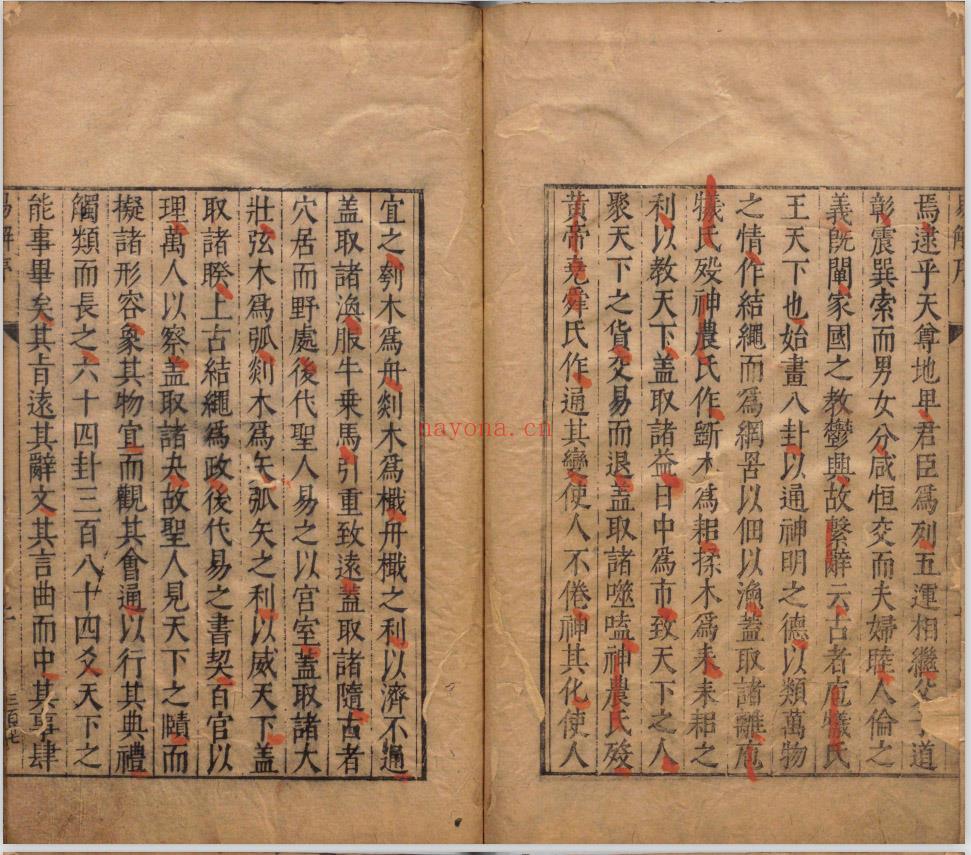 易解序
焉逮乎天尊地卑君臣爲列五運相繼父子道
彰震巽索而男女分咸恒交而夫婦睦人倫之
義旣闡家國之教鬱興故繫辭云古者庖犧氏
王天下也始畫八卦以通神明之德以類萬物
之情作結繩而爲網罟以佃以漁蓋取諸離庖
犧氏歿神農氏作斵木爲耜揉木爲耒耒耜之
利以教天下蓋取諸益日中爲市致天下之人
聚天下之貨交易而退蓋取諸噬嗑神農氏歿
黃帝堯舜氏作通其變使人不倦神其化使人
宜之刳木爲舟剡木爲檝舟檝之利以濟不通
蓋取諸渙服牛乗馬引重致遠蓋取諸隨古者
穴居而野處後代聖人易之以宮室蓋取諸大
壯弦木爲弧剡木爲矢弧矢之利以威天下蓋
取諸睽上古結繩爲政後代易之書契百官以
理萬人以察蓋取諸夬故聖人見天下之賾而
擬諸形容象其物宜而觀其會通以行其典禮
觸類而長之六十四卦三百八十四爻天下之
能事畢矣其旨遠其辭文其言曲而中其事肆
易解序
三百七
nayona.cn